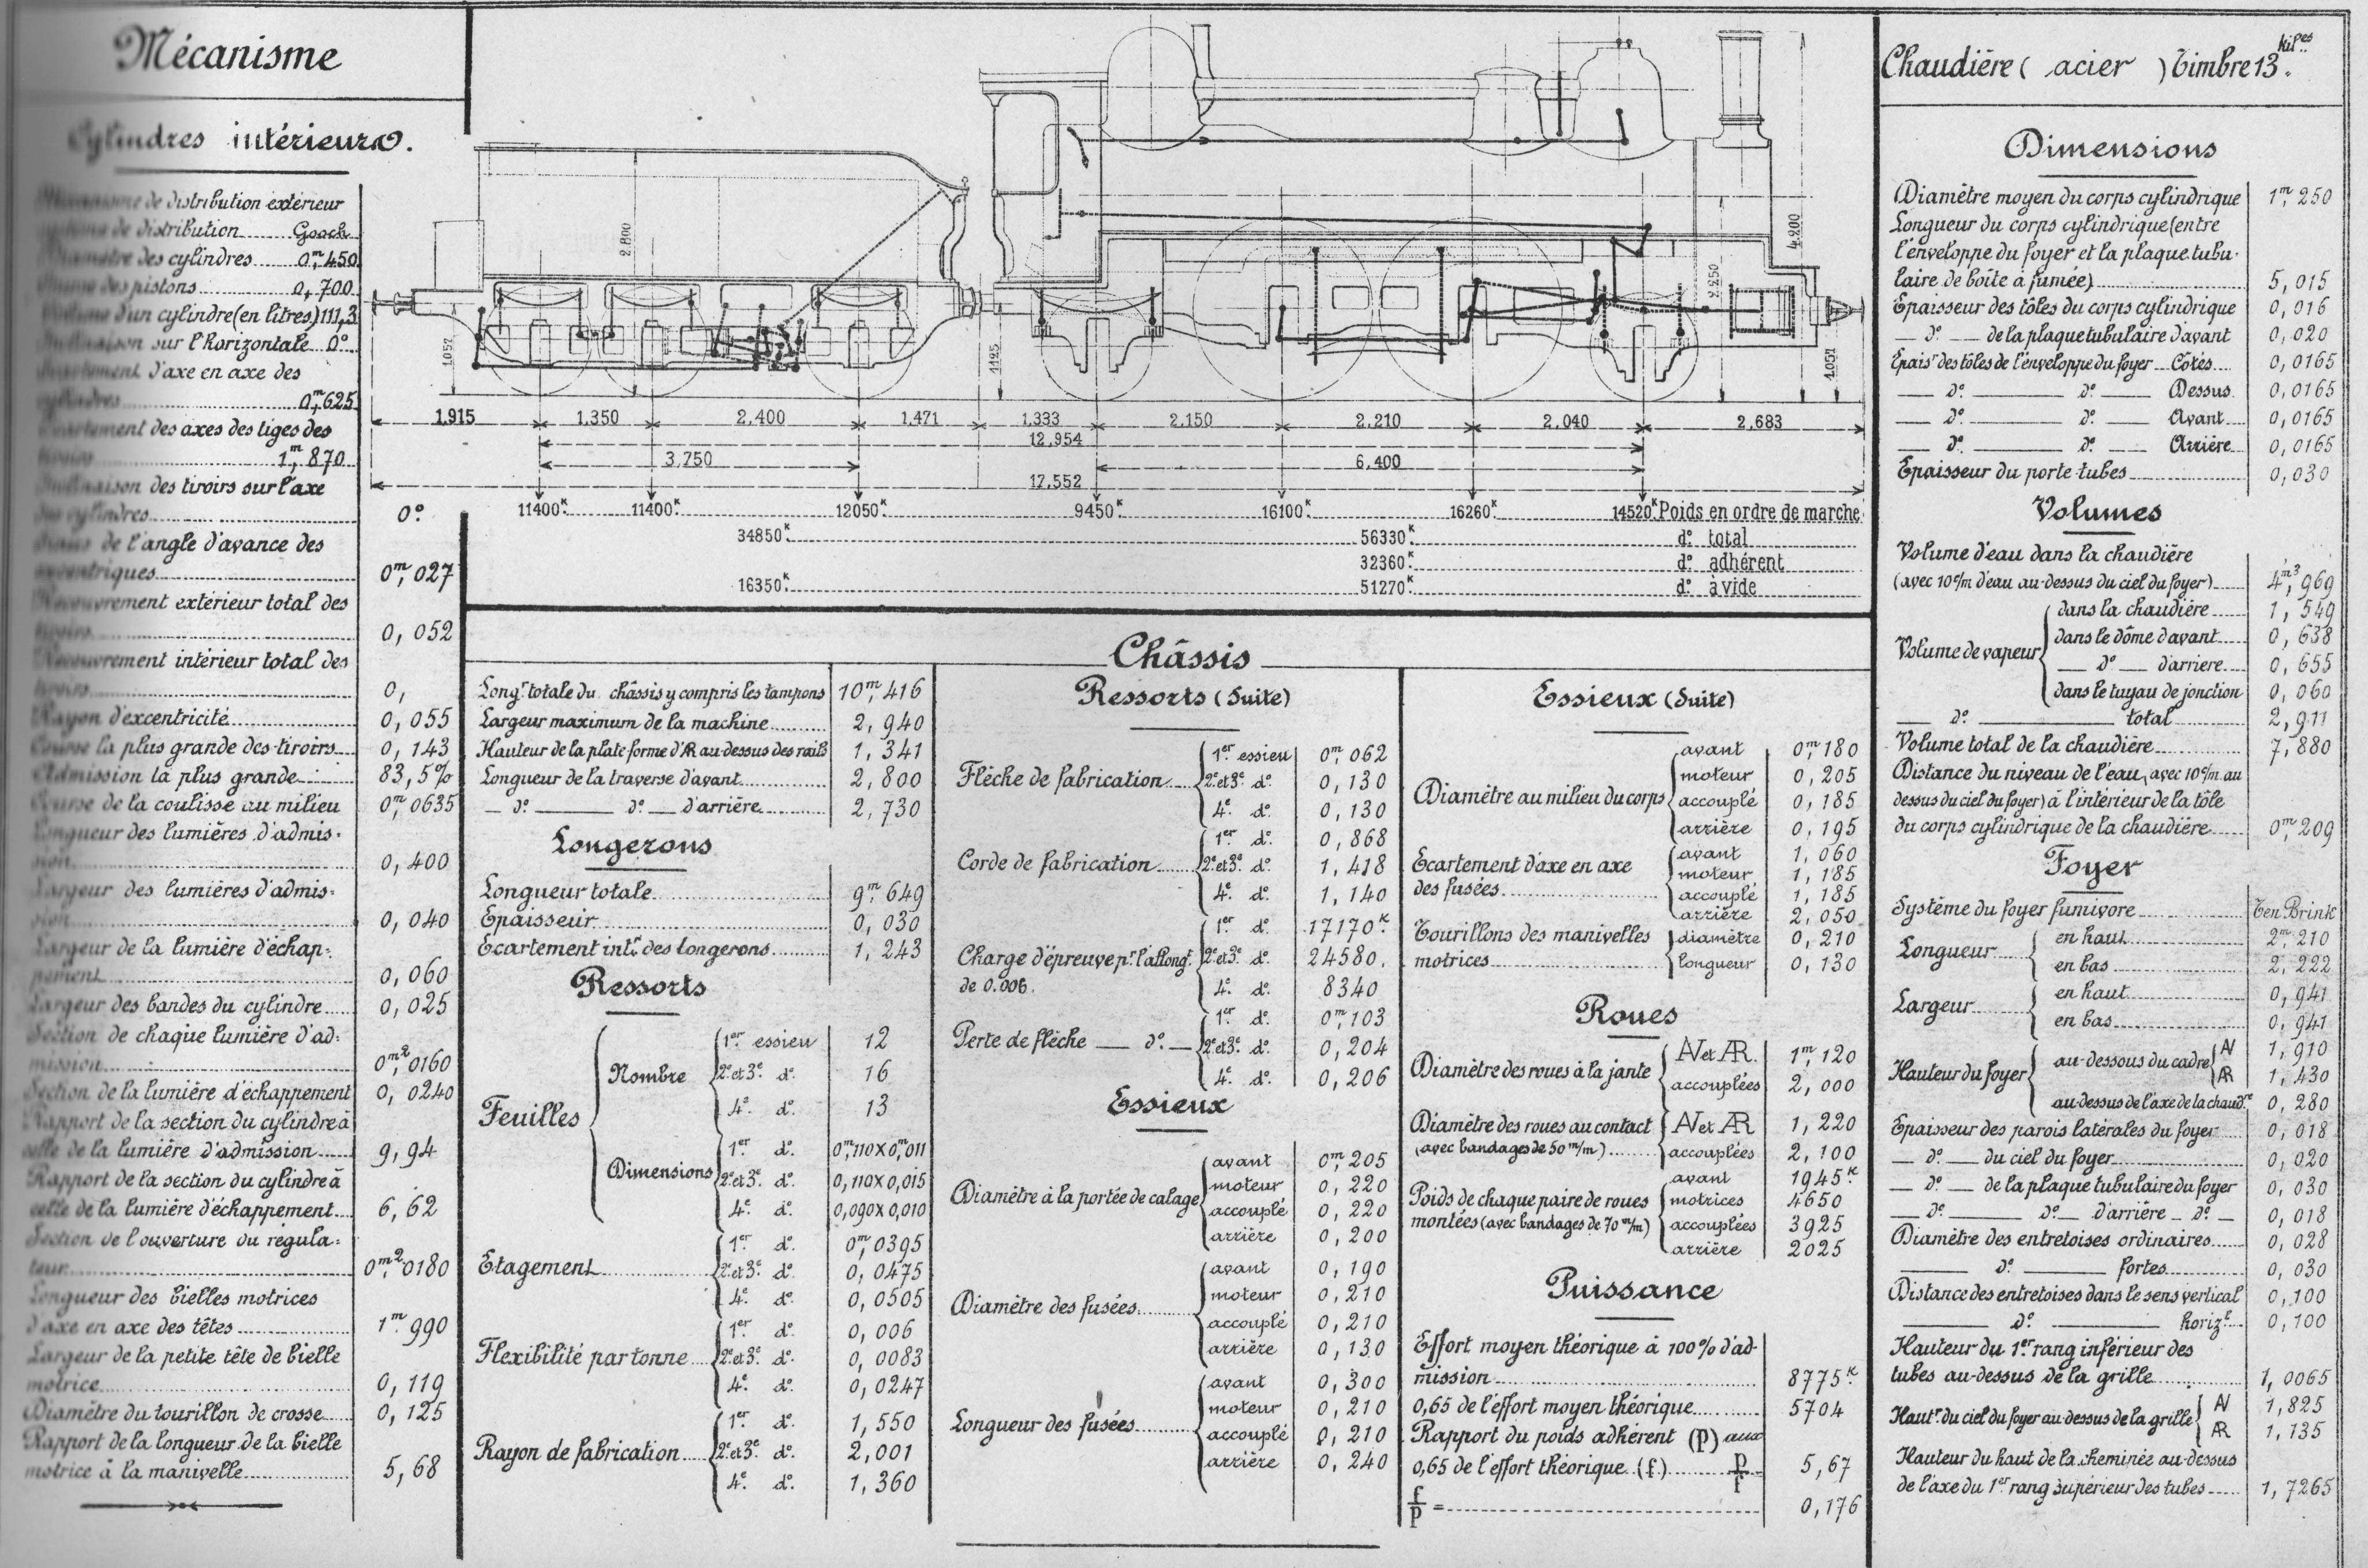 Mécanisme
Cylindres intérieurs.
Mécanisme de distribution extérieur
de distribution Gooch
Diamètre des cylindres 0,m450
des pistons 0,700
Volume d'un cylindre (en litres) 111,3
Inclinaison sur l'horizontale 0°
Ecartement d'axe en axe des
cylindres 0,m625
Ecartement des axes des tiges des
tiroirs 1,m870
Inclinaison des tiroirs sur l'axe
des cylindres 0°
de l'angle d'avance des
excentriques 0m,027
Recouvrement extérieur total des
tiroirs 0,052
Recouvrement intérieur total des
tiroirs 0,
Rayon d'excentricité 0,055
Course la plus grande des tiroirs 0,143
Admission la plus grande 83,5%
Course de la coulisse au milieu 0m,0635
Longueur des lumières d'admis-
sion 0,400
Largeur des lumières d'admis-
sion 0,040
Largeur de la lumière d'échap-
pement 0,060
Largeur des bandes du cylindre 0,025
Section de chaque lumière d'ad-
mission 0m²,0160
Section de la lumière d'échappement 0,0240
Rapport de la section du cylindre à
celle de la lumière d'admission 9,94
Rapport de la section du cylindre à
celle de la lumière d'échappement 6,62
Section de l'ouverture du régula-
teur 0m²,0180
Longueur des bielles motrices
d'axe en axe des têtes 1m,990
Largeur de la petite tête de bielle
motrice 0,119
Diamètre du tourillon de crosse 0,125
Rapport de la longueur de la bielle
motrice à la manivelle 5,68
2.800
1.052
1.125
4.200
2.250
1.052
1.915 1.350 2.400 1.471 1.333 2.150 2.210 2.040 2.683
12.954
3.750 6.400
17.552
11400K. 11400K. 12050K. 9450K. 16100K. 16260K. 14520K. Poids en ordre de marche
34850K. 56330K. d° total
32360K. d° adhérent
16350K. 51270K. d° à vide
Châssis
Longr totale du châssis y compris les tampons 10m,416
Largeur maximum de la machine 2,940
Hauteur de la plate forme d'AR au-dessus des rails 1,341
Longueur de la traverse d'avant 2,800
— d° — d° — d'arrière 2,730
Longerons
Longueur totale 9m,649
Epaisseur 0,030
Ecartement intr. des longerons 1,243
Ressorts
Feuilles
Nombre
1er essieu 12
2e et 3e d° 16
4e d° 13
Dimensions
1er d° 0,m110 x 0,m011
2e et 3e d° 0,110 x 0,015
4e d° 0,090 x 0,010
Etagement
1er d° 0m,0395
2e et 3e d° 0,0475
4e d° 0,0505
Flexibilité par tonne
1er d° 0,006
2e et 3e d° 0,0083
4e d° 0,0247
Rayon de fabrication
1er d° 1,550
2e et 3e d° 2,001
4e d° 1,360
Ressorts (Suite)
Flèche de fabrication
1er essieu 0m,062
2e et 3e d° 0,130
4e d° 0,130
Corde de fabrication
1er d° 0,868
2e et 3e d° 1,418
4e d° 1,140
Charge d'épreuve pr. l'allongt.
de 0.006.
1er d° 17170K.
2e et 3e d° 24580.
4e d° 8340
Perte de flèche — d° —
1er d° 0m,103
2e et 3e d° 0,204
4e d° 0,206
Essieux
Diamètre à la portée de calage
avant 0m,205
moteur 0,220
accouplé 0,220
arrière 0,200
Diamètre des fusées
avant 0,190
moteur 0,210
accouplé 0,210
arrière 0,130
Longueur des fusées
avant 0,300
moteur 0,210
accouplé 0,210
arrière 0,240
Essieux (Suite)
Diamètre au milieu du corps
avant 0m,180
moteur 0,205
accouplé 0,185
arrière 0,195
Ecartement d'axe en axe
des fusées
avant 1,060
moteur 1,185
accouplé 1,185
arrière 2,050
Tourillons des manivelles
motrices
diamètre 0,210
longueur 0,130
Roues
Diamètre des roues à la jante
AV et AR. 1m,120
accouplées 2,000
Diamètre des roues au contact
(avec bandages de 50 m/m)
AV et AR 1,220
accouplées 2,100
Poids de chaque paire de roues
montées (avec bandages de 70 m/m)
avant 1945K.
motrices 4650
accouplées 3925
arrière 2025
Puissance
Effort moyen théorique à 100% d'ad-
mission 8775K.
0,65 de l'effort moyen théorique 5704
Rapport du poids adhérent (P) aux
0,65 de l'effort théorique (f) P/f 5,67
f/P = 0,176
Chaudière (acier) Timbre 13 kiloes.
Dimensions
Diamètre moyen du corps cylindrique 1m,250
Longueur du corps cylindrique (entre
l'enveloppe du foyer et la plaque tubu-
laire de boîte à fumée) 5,015
Epaisseur des tôles du corps cylindrique 0,016
— d° — de la plaque tubulaire d'avant 0,020
Epaisr des tôles de l'enveloppe du foyer Côtés 0,0165
— d° — d° — Dessus 0,0165
— d° — d° — Avant 0,0165
— d° — d° — Arrière 0,0165
Epaisseur du porte tubes 0,030
Volumes
Volume d'eau dans la chaudière
(avec 10c/m d'eau au-dessus du ciel du foyer) 4m³,969
Volume de vapeur
dans la chaudière 1,549
dans le dôme d'avant 0,638
— d° — d'arrière 0,655
dans le tuyau de jonction 0,060
— d° — total 2,911
Volume total de la chaudière 7,880
Distance du niveau de l'eau, avec 10c/m au
dessus du ciel du foyer) à l'intérieur de la tôle
du corps cylindrique de la chaudière 0m,209
Foyer
Système du foyer fumivore Ten Brink
Longueur
en haut 2m,210
en bas 2,222
Largeur
en haut 0,941
en bas 0,941
Hauteur du foyer
au-dessous du cadre AV 1,910
AR 1,430
au-dessus de l'axe de la chaudre 0,280
Epaisseur des parois latérales du foyer 0,018
— d° — du ciel du foyer 0,020
— d° — de la plaque tubulaire du foyer 0,030
— d° — d° d'arrière — d° — 0,018
Diamètre des entretoises ordinaires 0,028
— d° — fortes 0,030
Distance des entretoises dans le sens vertical 0,100
— d° — horizt. 0,100
Hauteur du 1er rang inférieur des
tubes au-dessus de la grille 1,0065
Hautr du ciel du foyer au-dessus de la grille AV 1,825
AR 1,135
Hauteur du haut de la cheminée au-dessus
de l'axe du 1er rang supérieur des tubes 1,7265